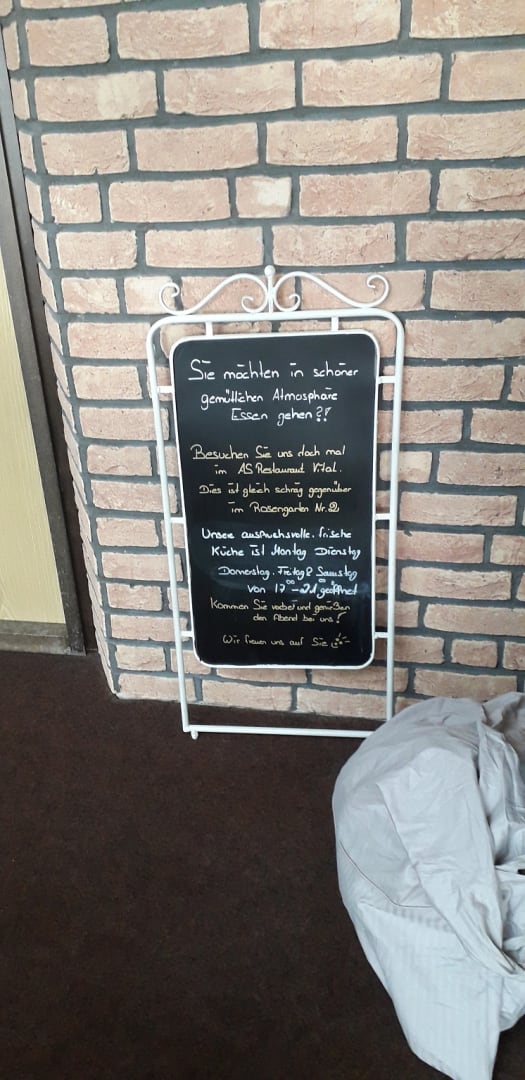 Sie möchten in schöner
gemütlichen Atmosphäre
Essen gehen?!
Besuchen Sie uns doch mal
im AS Restaurant Vital.
Dies ist gleich schräg gegenüber
im Rosengarten Nr. 2
Unsere anspruchsvolle, frische
Küche ist Montag Dienstag
Donnerstag, Freitag & Samstag
von 17⁰⁰ - 21⁰⁰ geöffnet
Kommen Sie vorbei und genießen
den Abend bei uns!
Wir freuen uns auf Sie